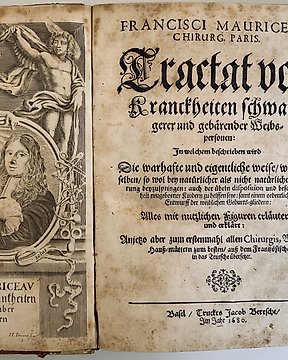 RICEAV
ntheiten
ber
rn
FRANCISCI MAURICE
CHIRURG. PARIS.
Tractat vo
Kranckheiten schwa
gerer und gebärender Weibs-
personen:
In welchem beschrieben wird
Die warhafte und eigentliche weise, w
selben, so wol bey natürlicher als nicht natürliche
rung beyzuspringen: auch der übeln disposition und besc
heit neugeborner Kindern zu helffen seye: samt einem ordentlich
Entwurff der weiblichen Geburts-gliedern:
Alles mit nutzlichen Figuren erläuter
und erklärt:
Anjetzo aber zum erstenmahl allen Chirurgis,
Hauß-mütern zum besten, auß dem Frantzösisch
in das Teutsche übersetzt.
Basel / Truckts Jacob Bertsche /
Im Jahr 1680.